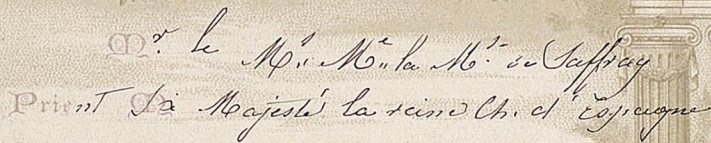 Mr. le Mis. Me. la Mse. de Saffray
Prient Sa Majesté la reine Ch. d'Espagne